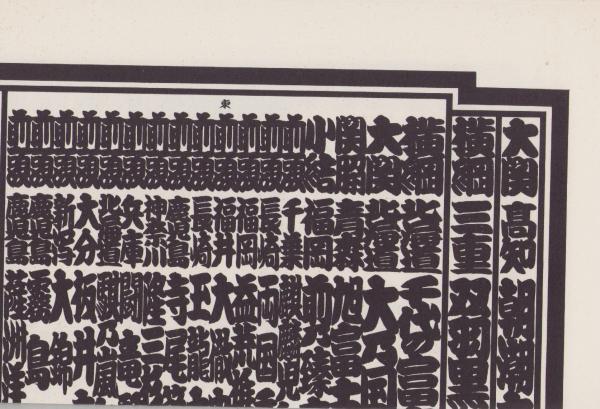 東
大関 高知 朝潮太
横綱 三重 双羽黒
横綱 北海道 千代の富
大関 北海道 大乃国
関脇 青森 旭富士
小結 福岡 前乃臻
前頭 千葉 麒麟児
前頭 長崎 両国
前頭 福岡 益荒雄
前頭 福井 大徹
前頭 長崎 玉龍
前頭 鹿児島 寺尾
前頭 神奈川 隆三杉
前頭 兵庫 闘竜
前頭 北海道 騏乃嵐
前頭 大分 板井
前頭 新潟 大錦
前頭 鹿児島 霧島
前頭 鹿児島 薩洲洋